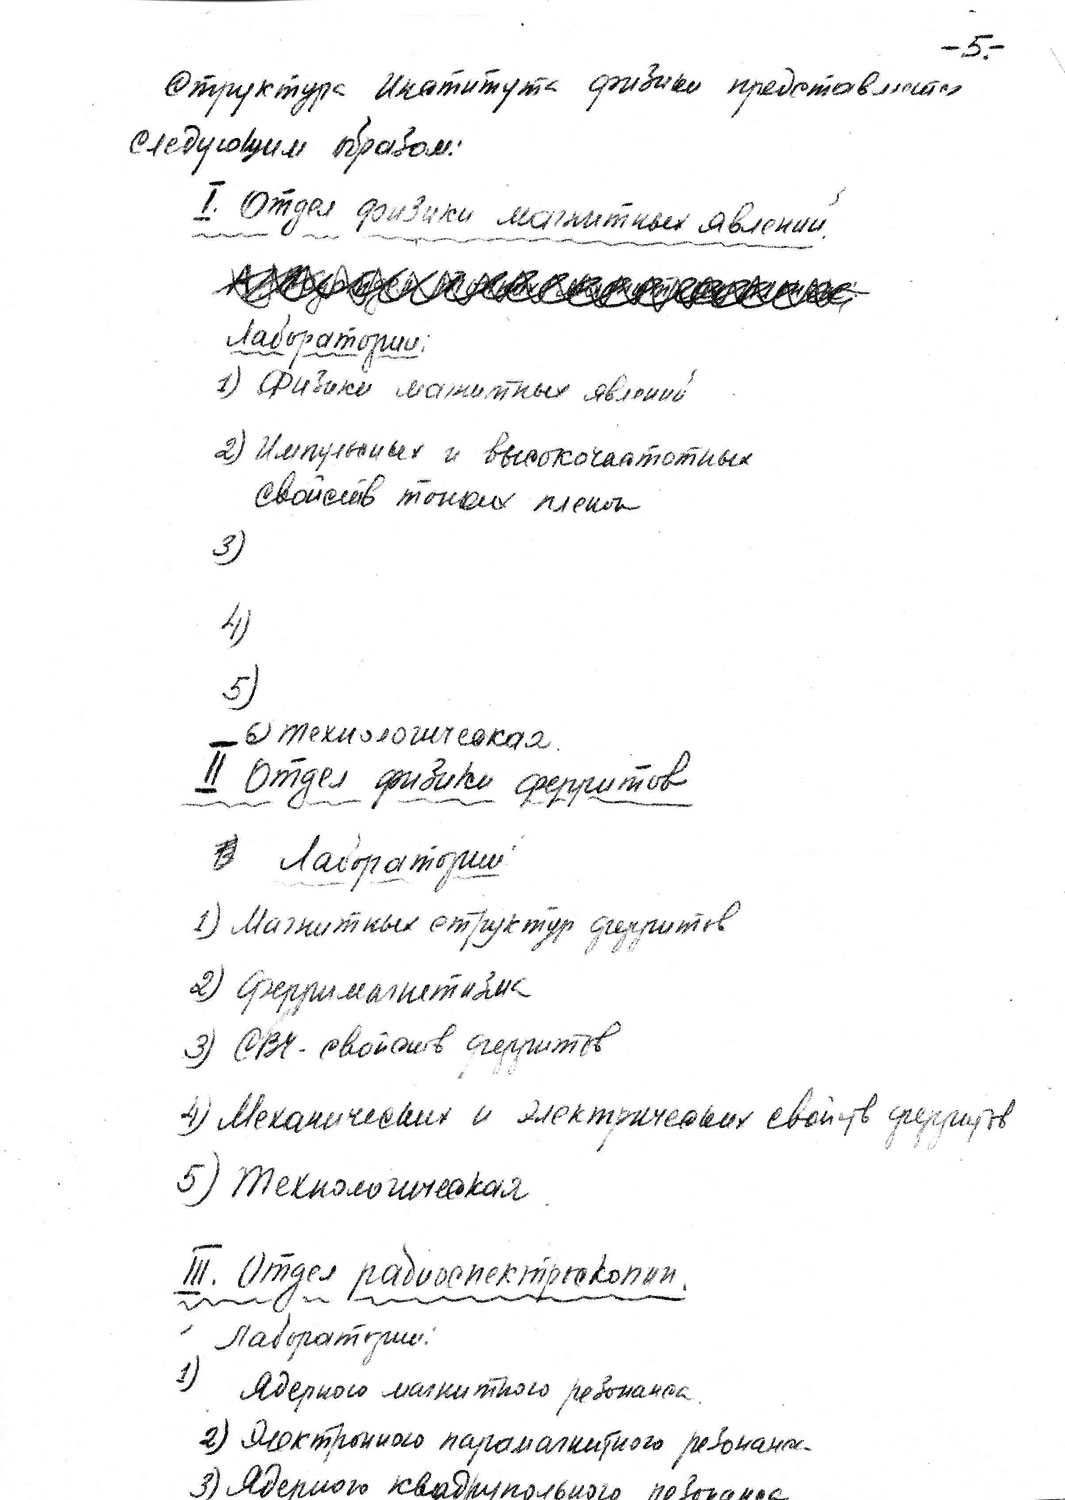 -5.-
Структура Института физики представляется
следующим образом:
I. Отдел физики магнитных явлений.
Лаборатории:
1) Физики магнитных явлений
2) Импульсных и высокочастотных
свойств тонких пленок
3)
4)
5)
6) технологическая.
II Отдел физики ферритов
Лаборатории
1) Магнитных структур ферритов
2) Ферримагнетизма
3) СВЧ-свойств ферритов
4) Механических и электрических свойств ферритов
5) Технологическая.
III. Отдел радиоспектроскопии.
Лаборатории:
1)
Ядерного магнитного резонанса.
2) Электронного парамагнитного резонанса
3) Ядерного квадрупольного резонанса